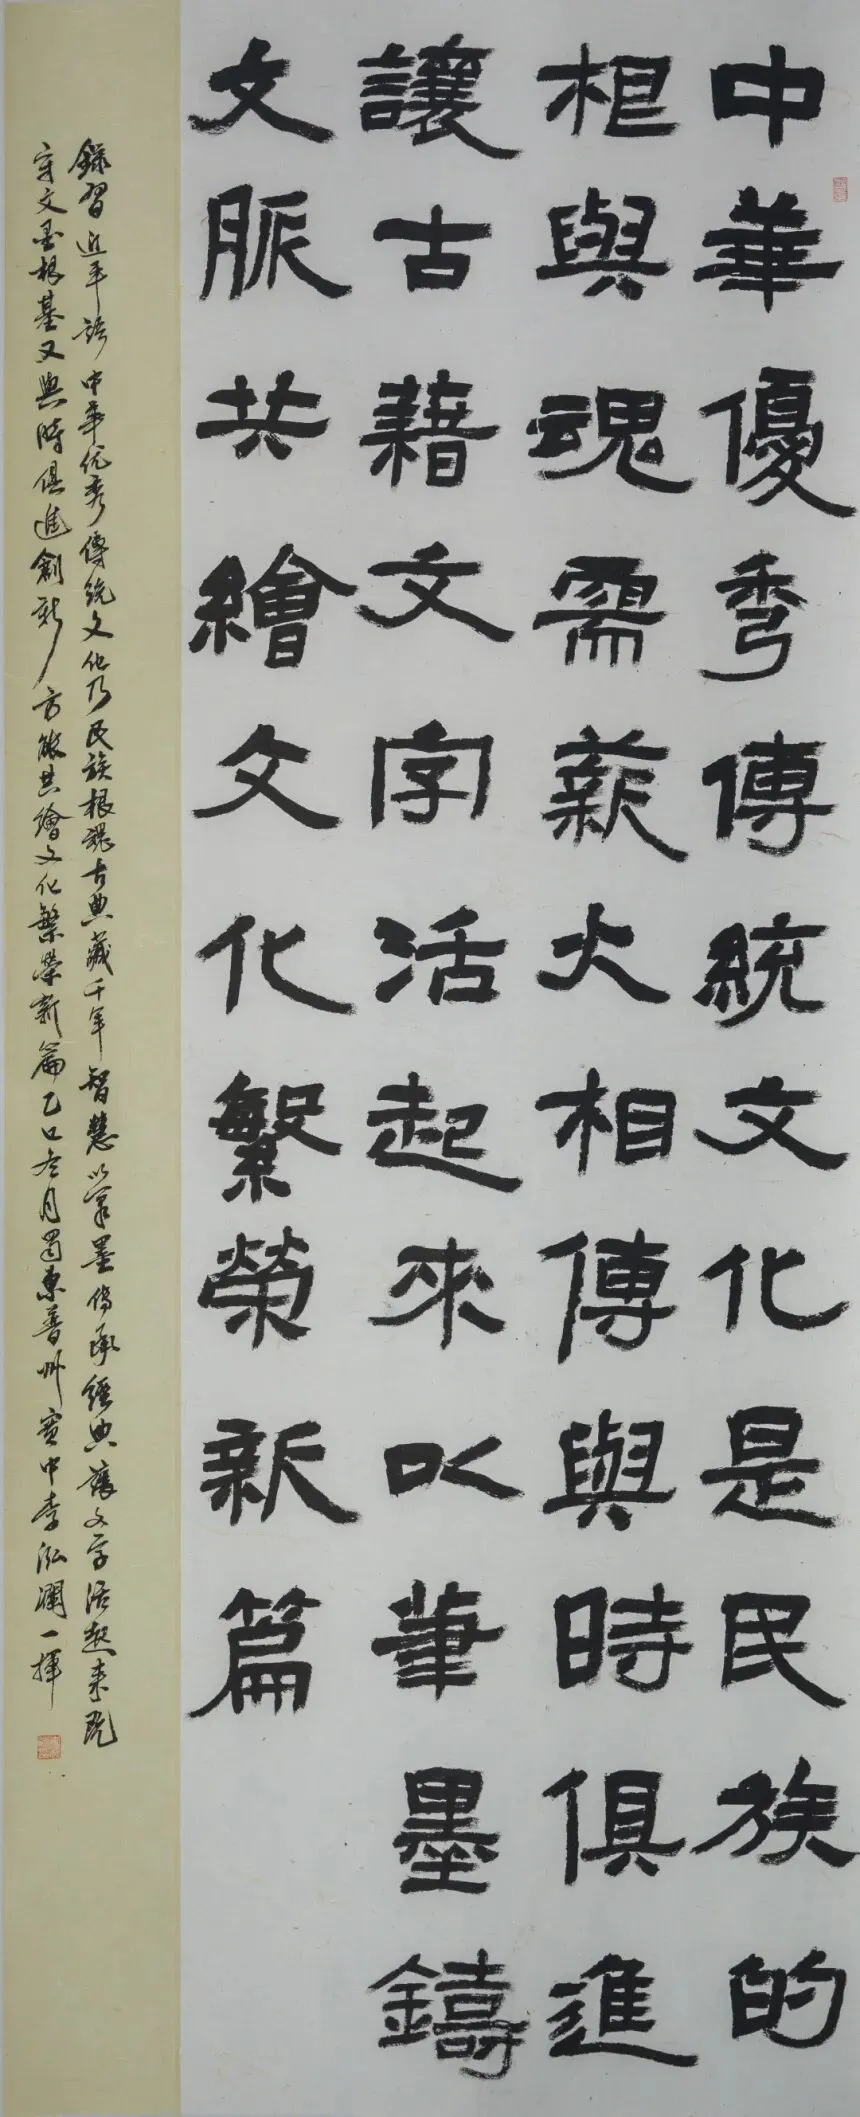 中華優秀傳統文化是民族的
根與魂需薪火相傳與時俱進
讓古藉文字活起來以筆墨鑄
文脈共繪文化繁榮新篇
錄習近平語中華优秀傳統文化乃民族根魂古典藏千年智慧以筆墨傳承經典讓文字活起来既
守文墨根基又與時俱進創新方能共繪文化繁榮新篇乙巳冬月蜀東普州寶中李泓瀾一揮